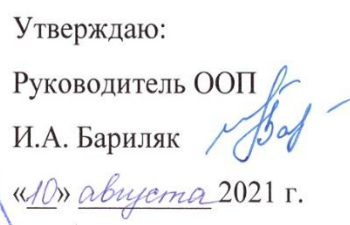 Утверждаю:
Руководитель ООП
И.А. Бариляк
«10» августа 2021 г.